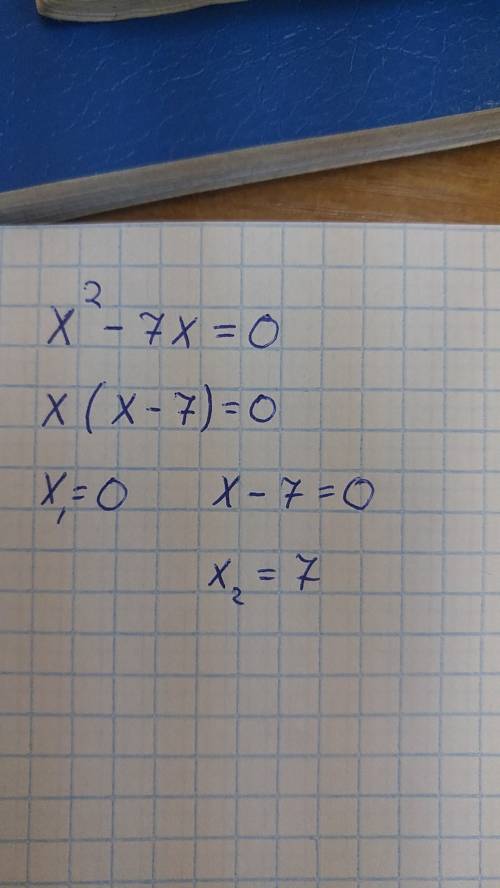 x² - 7x = 0
x(x - 7) = 0
x₁ = 0 x - 7 = 0
x₂ = 7